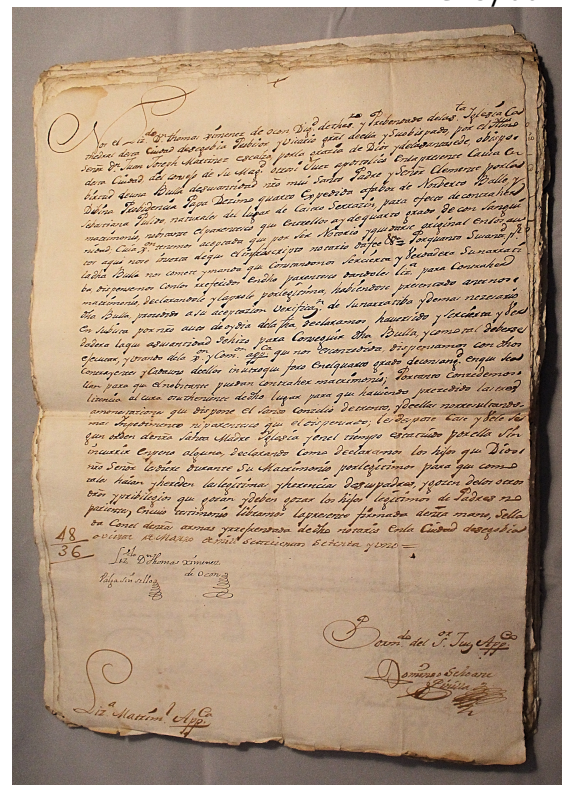 Nos el Liz.do D.n thomas ximenez de ocon Dig.d de thes.ro y Prebendado dela S.ta Iglesia Ca
thedral desta Ciudad desegobia Probisor y Vicario gral della y Su obispado, por el Illmo
Señor D.n Juan Joseph Martinez escalzo por la grazia de Dios y dela Santa sede, obispo
desta Ciudad del consejo de Su Mag.d &c. Juez apostolico En la presente Causa Ca
Virtud de una Bulla de su santidad nro mui Santo Padre y Señor Clemente por la
Divina Probidencia Papa Dezimo quarto Expedida a favor de Norberto Bulla y
Sebastiana Pulido naturales del lugar de Castro Serrazin, para efecto de contraher
matrimonio, sobre el parentesco que entre ellos ay de quarto grado de con sangui
nidad Cuia Bulla tenemos aceptada que por ser Notorio y quedarse original en los au
tos aqui no se inserta de que el infraescripto notario da fee &.a Por quanto Su Santd.
la dha Bulla nos comete y manda que Constandonos Ser cierta y Verdadera Su narrati
ba dispensemos con los referidos En dho parentesco dandoles liz.a para Contraher
matrimonio, declarandole y la prole por lexitima, habiendose presentado ante nos
dha Bulla procedido a su aceptazion verificaz.n de Su narratiba y demas nezesario
En bista por nro auto de oy dia dela fha declaramos haver sido y ser cierta y Ver
dadera la que a Su santidad se hizo para Conseguir dha Bulla, y como tal deberse
ejecutar, y usando dela Jur.on y Com.on app.ca que nos es conzedida dispensamos con dhos
Contrayentes y Cada uno dellos in utroque foro En el quarto grado de consang.d en que se a
llan para que el no obstante puedan contraher matrimonio; Por tanto Conzedemos
lizencia al cura o su theniente de dho lugar para que haviendo precedido las tres
amonestaciones que dispone el Santo Concilio de trento, y de ellas no resultando
mas Impedimento ni parentesco que el dispensado, les despose Case y Vele se
gun orden de nra Santa Madre Iglesia y en el tiempo estatuido por ella Sin
incurrir En pena alguna, declarando Como declaramos los hijos que Dios
nro Señor la diere durante Su Matrimonio por lexitimos para que como
tales haian y hereden la lexitima y herencia de sus padres, y gozen de los otros
dros y pribilegios que gozan y deben gozar los hijos lexitimos de Padres no
parientes, En cuio testimonio libramos la presente firmada de nra mano, Sella
da Con el de nras armas y refrendada de dho notario En la Ciudad desegobia
a de Marzo de mil Setecientos Setenta y uno =
48
36
Liz.do D.n Thomas Ximenez
de Ocon
Valga Sin sello
Por m.do del S.or Juez App.co
Domingo Schoane
Pinilla
Liz.a Matrim.l App.ca